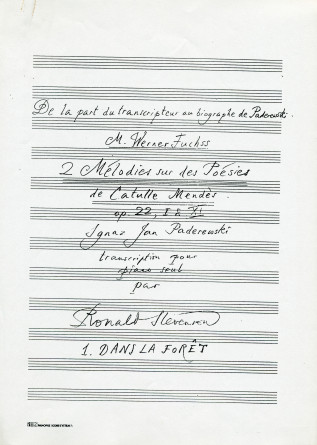 De la part du transcripteur au biographe de Paderewski.
M. Werner Fuchss
2 Mélodies sur des Poésies
de Catulle Mendès
op. 22, I & VI
Ignaz Jan Paderewski
transcription pour
piano seul
par
Ronald Stevenson
1. DANS LA FORÊT